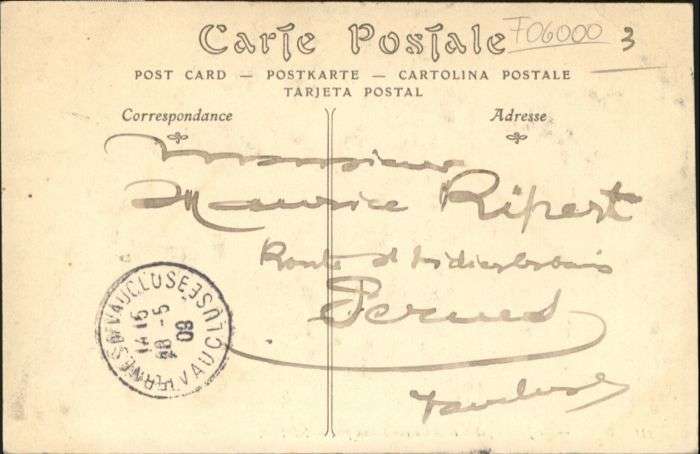 Carte Postale
F06000 3
POST CARD — POSTKARTE — CARTOLINA POSTALE
TARJETA POSTAL
Correspondance
Adresse
Monsieur
Maurice Ripert
Route d
Pernes
Vaucluse
VAUCLUSE
VAUCLUSE